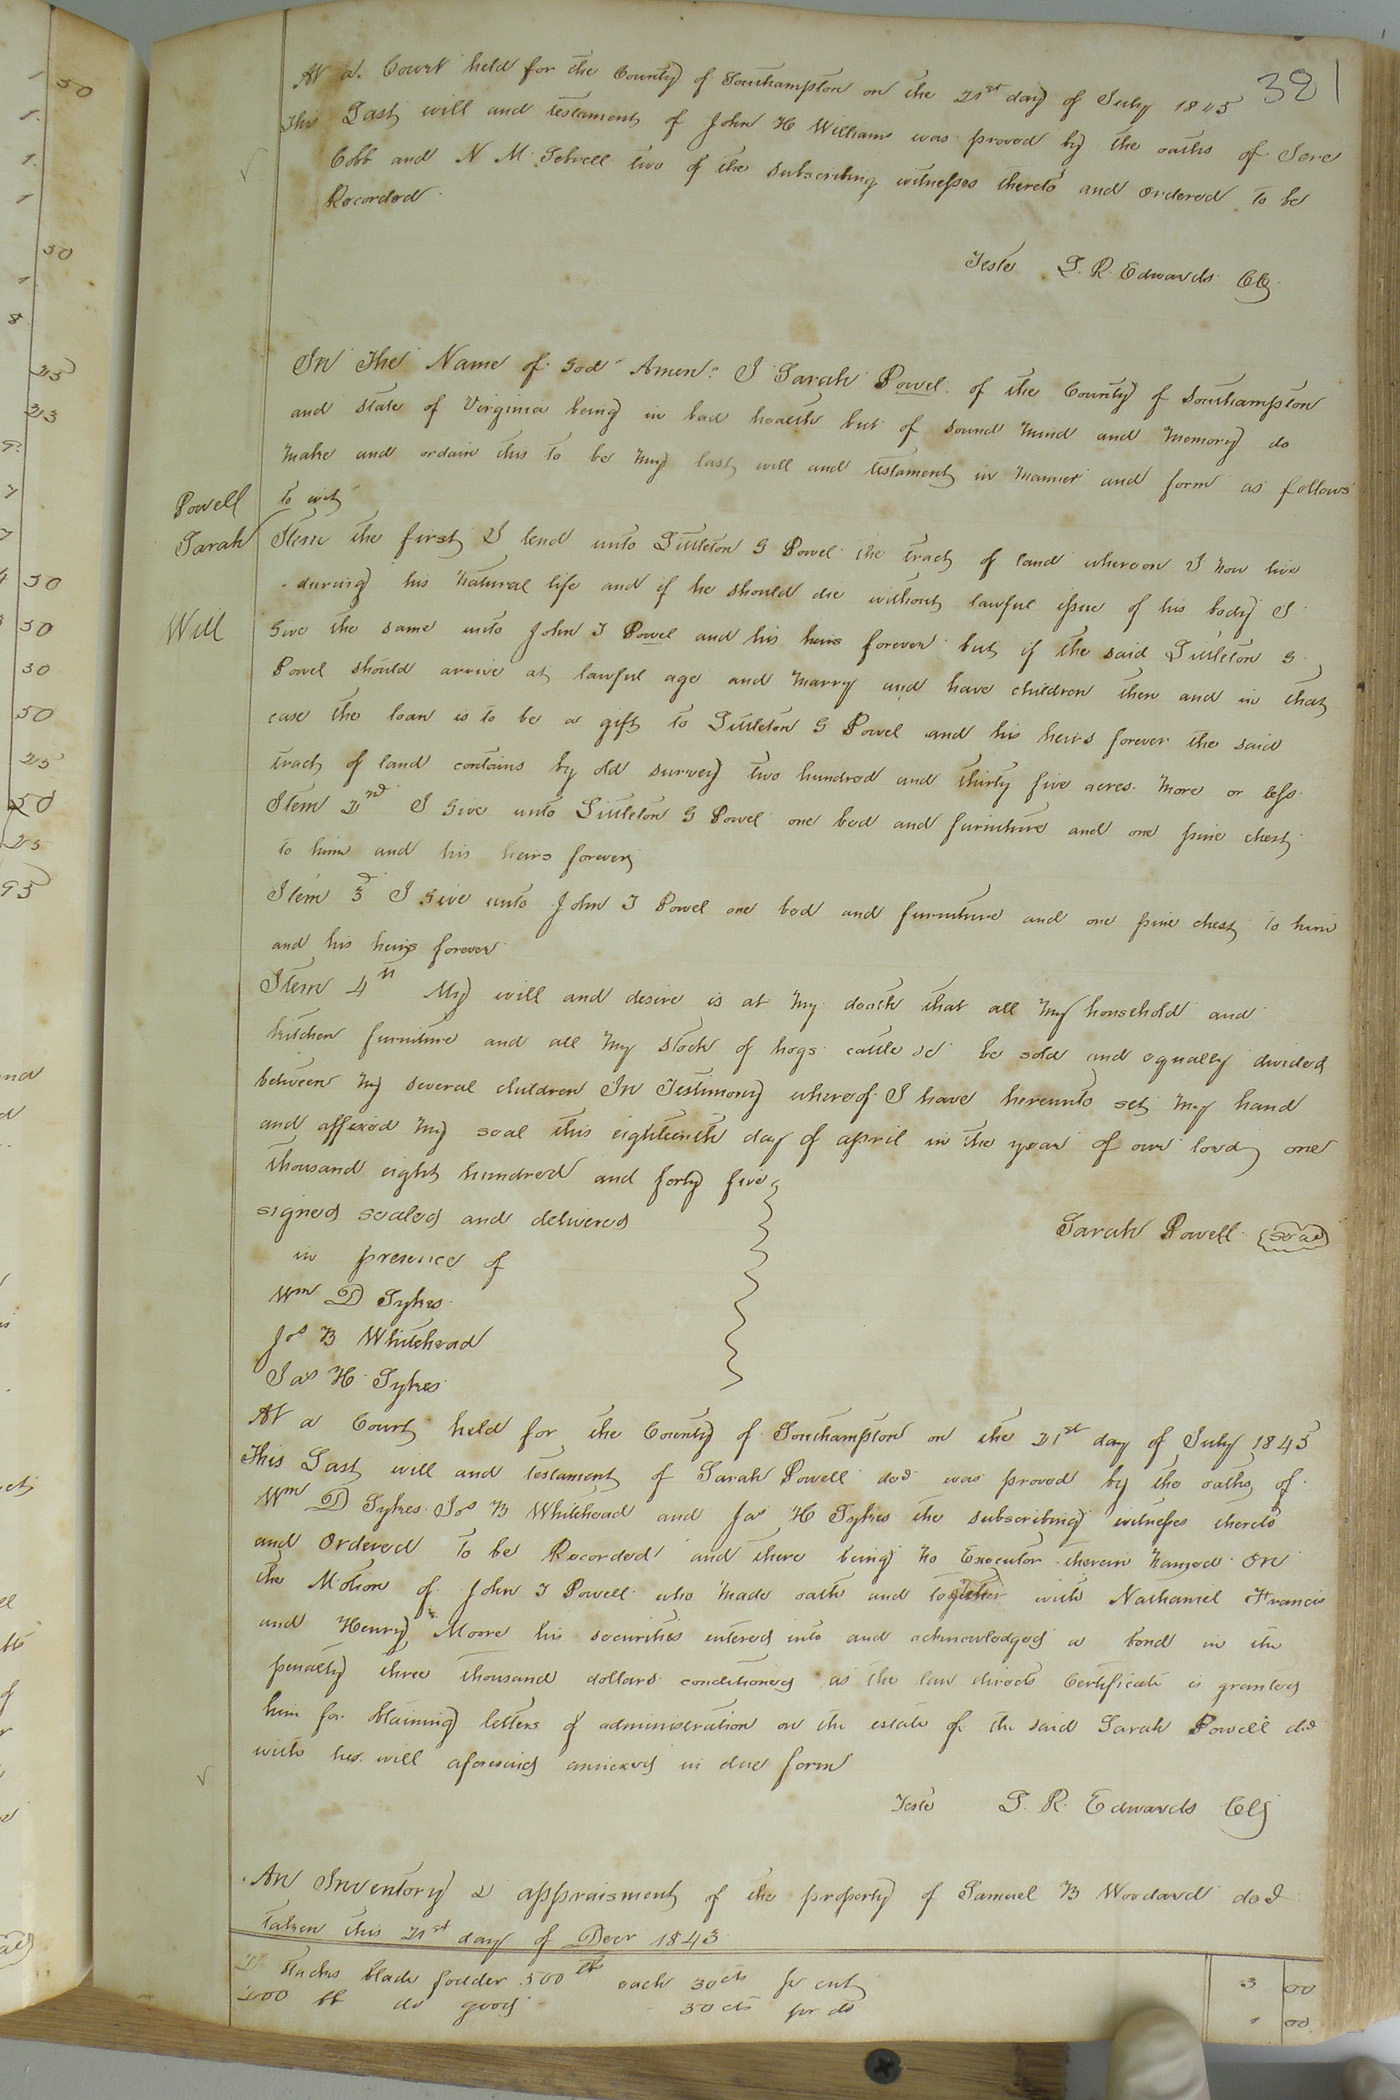 381
At a Court held for the County of Southampton on the 21st day of July 1845
This Last will and testament of John H Williams was proved by the oaths of Jere
Cobb and N M Sebrell two of the subscribing witnesses thereto and ordered to be
Recorded
Teste L. R. Edwards CC
In The Name of God Amen. I Sarah Powel of the County of Southampton
and state of Virginia being in bad health but of sound mind and memory do
make and ordain this to be my last will and testament in manner and form as follows
to wit
Powell
Sarah
Will
Item the first I lend unto Littleton G Powel the tract of land whereon I now live
during his natural life and if he should die without lawful issue of his body I
Give the same unto John T Powel and his heirs forever but if the said Littleton G
Powel should arrive at lawful age and marry and have children then and in that
case the loan is to be a gift to Littleton G Powel and his heirs forever the said
tract of land contains by old survey two hundred and thirty five acres more or less
Item 2nd I Give unto Littleton G Powel one bed and furniture and one pine chest
to him and his heirs forever
Item 3d I Give unto John T Powel one bed and furniture and one pine chest to him
and his heirs forever
Item 4th My will and desire is at my death that all my household and
kitchen furniture and all my stock of hogs cattle &c be sold and equally divided
between my several children In Testimony whereof I have hereunto set my hand
and affixed my seal this eighteenth day of april in the year of our lord one
thousand eight hundred and forty five
signed sealed and delivered
Sarah Powell (seal)
in presence of
Wm D Sykes
Jos B Whitehead
Jas H Sykes
At a Court held for the County of Southampton on the 21st day of July 1845
This Last will and testament of Sarah Powell decd was proved by the oaths of
Wm D Sykes Jos B Whitehead and Jas H Sykes the subscribing witnesses thereto
and Ordered to be Recorded and there being no Executor therein named On
the Motion of John T Powell who made oath and together with Nathaniel Francis
and Henry Moore his securities entered into and acknowledged a bond in the
penalty three thousand dollars conditioned as the law directs Certificate is granted
him for obtaining letters of administration on the estate of the said Sarah Powell decd
with her will aforesaid annexed in due form
Teste L. R. Edwards CC
An Inventory & appraisment of the property of Samuel B Woodard decd
taken this 21st day of Decr 1843
stacks blade fodder 500 lb each 30 cts pr cut 3 00
200 lb do good 50 cts pr do 1 00